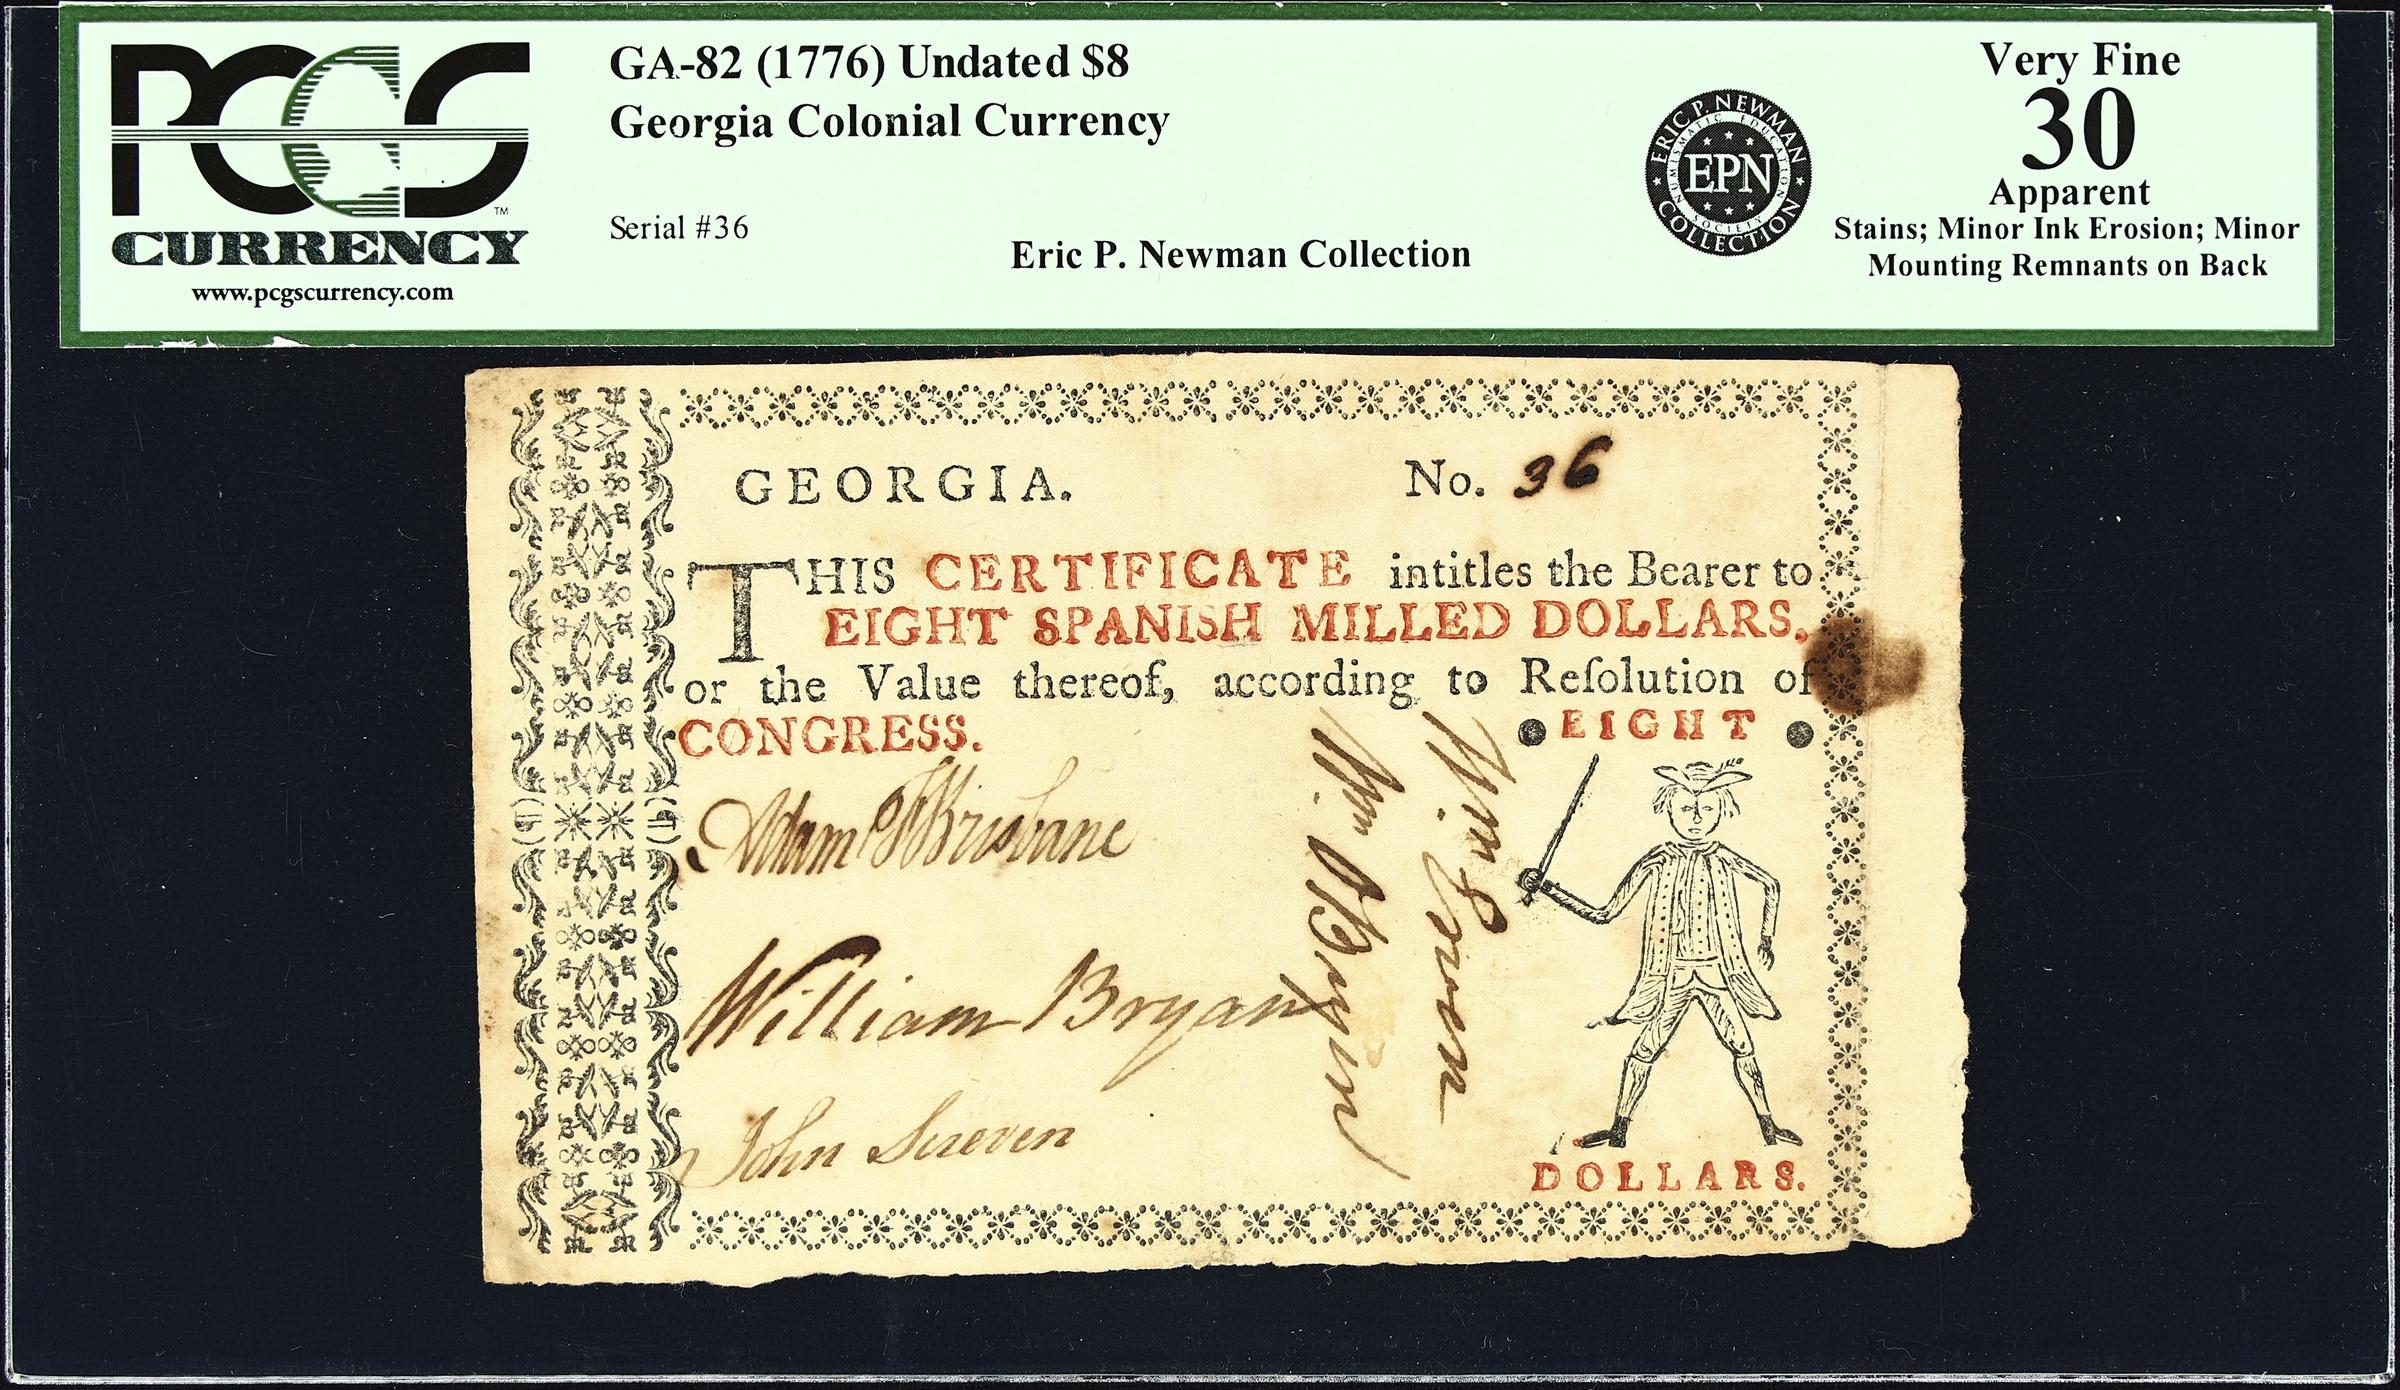 PCGS
CURRENCY
™
www.pcgscurrency.com
GA-82 (1776) Undated $8
Georgia Colonial Currency
Serial #36
Eric P. Newman Collection
ERIC P. NEWMAN
NUMISMATIC EDUCATION
EPN
SOCIETY
COLLECTION
Very Fine
30
Apparent
Stains; Minor Ink Erosion; Minor
Mounting Remnants on Back
GEORGIA. No. 36
THIS CERTIFICATE intitles the Bearer to
EIGHT SPANISH MILLED DOLLARS,
or the Value thereof, according to Reſolution of
CONGRESS.
EIGHT
Adam Brisbane
William Bryan
John Screven
Wm
Wm
DOLLARS.